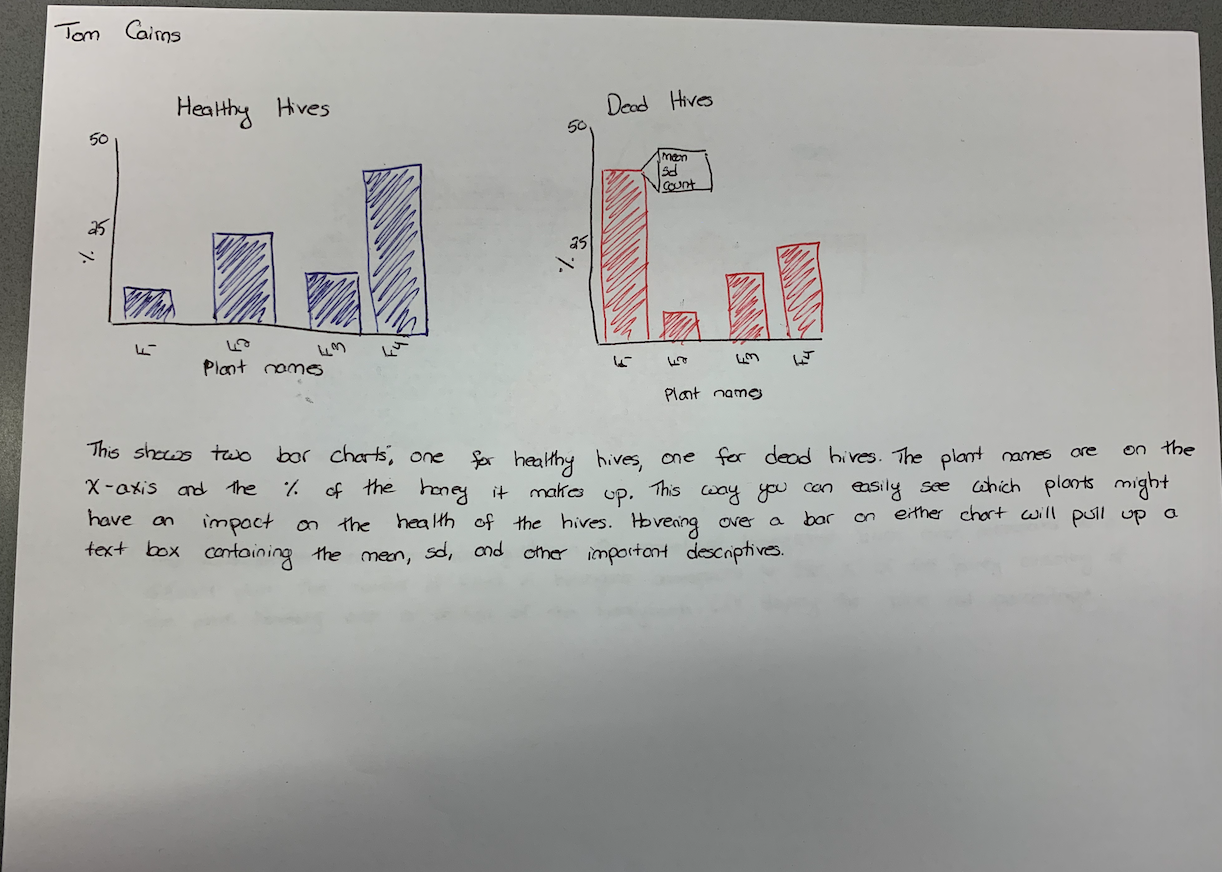 Tom Cairns
Healthy Hives
50
25
%
F1
F2
F3
F4
Plant names
Dead Hives
50
mean
sd
count
25
%
F1
F2
F3
F4
Plant names
This shows two bar charts; one for healthy hives, one for dead hives. The plant names are on the
X-axis and the % of the honey it makes up. This way you can easily see which plants might
have an impact on the health of the hives. Hovering over a bar on either chart will pull up a
text box containing the mean, sd, and other important descriptives.